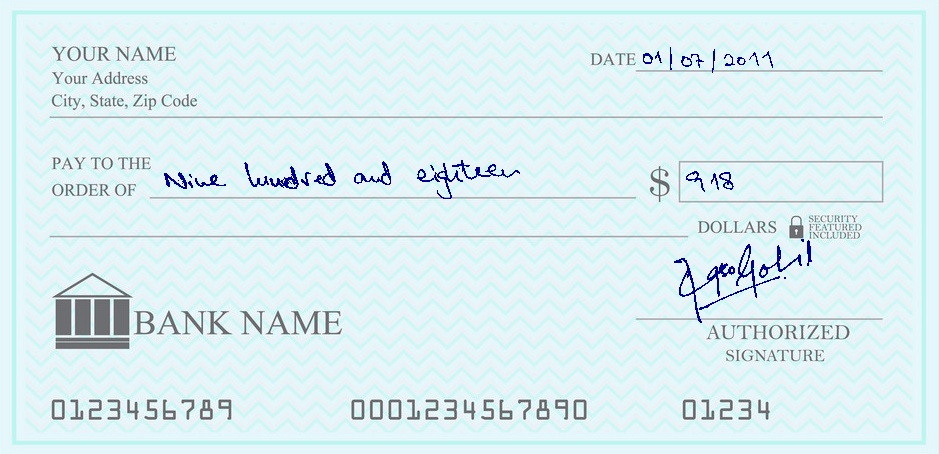 YOUR NAME
Your Address
City, State, Zip Code
DATE 01/07/2011
PAY TO THE
ORDER OF Nine hundred and eighteen $ 918
DOLLARS
SECURITY
FEATURED
INCLUDED
BANK NAME
AUTHORIZED
SIGNATURE
0123456789 0001234567890 01234